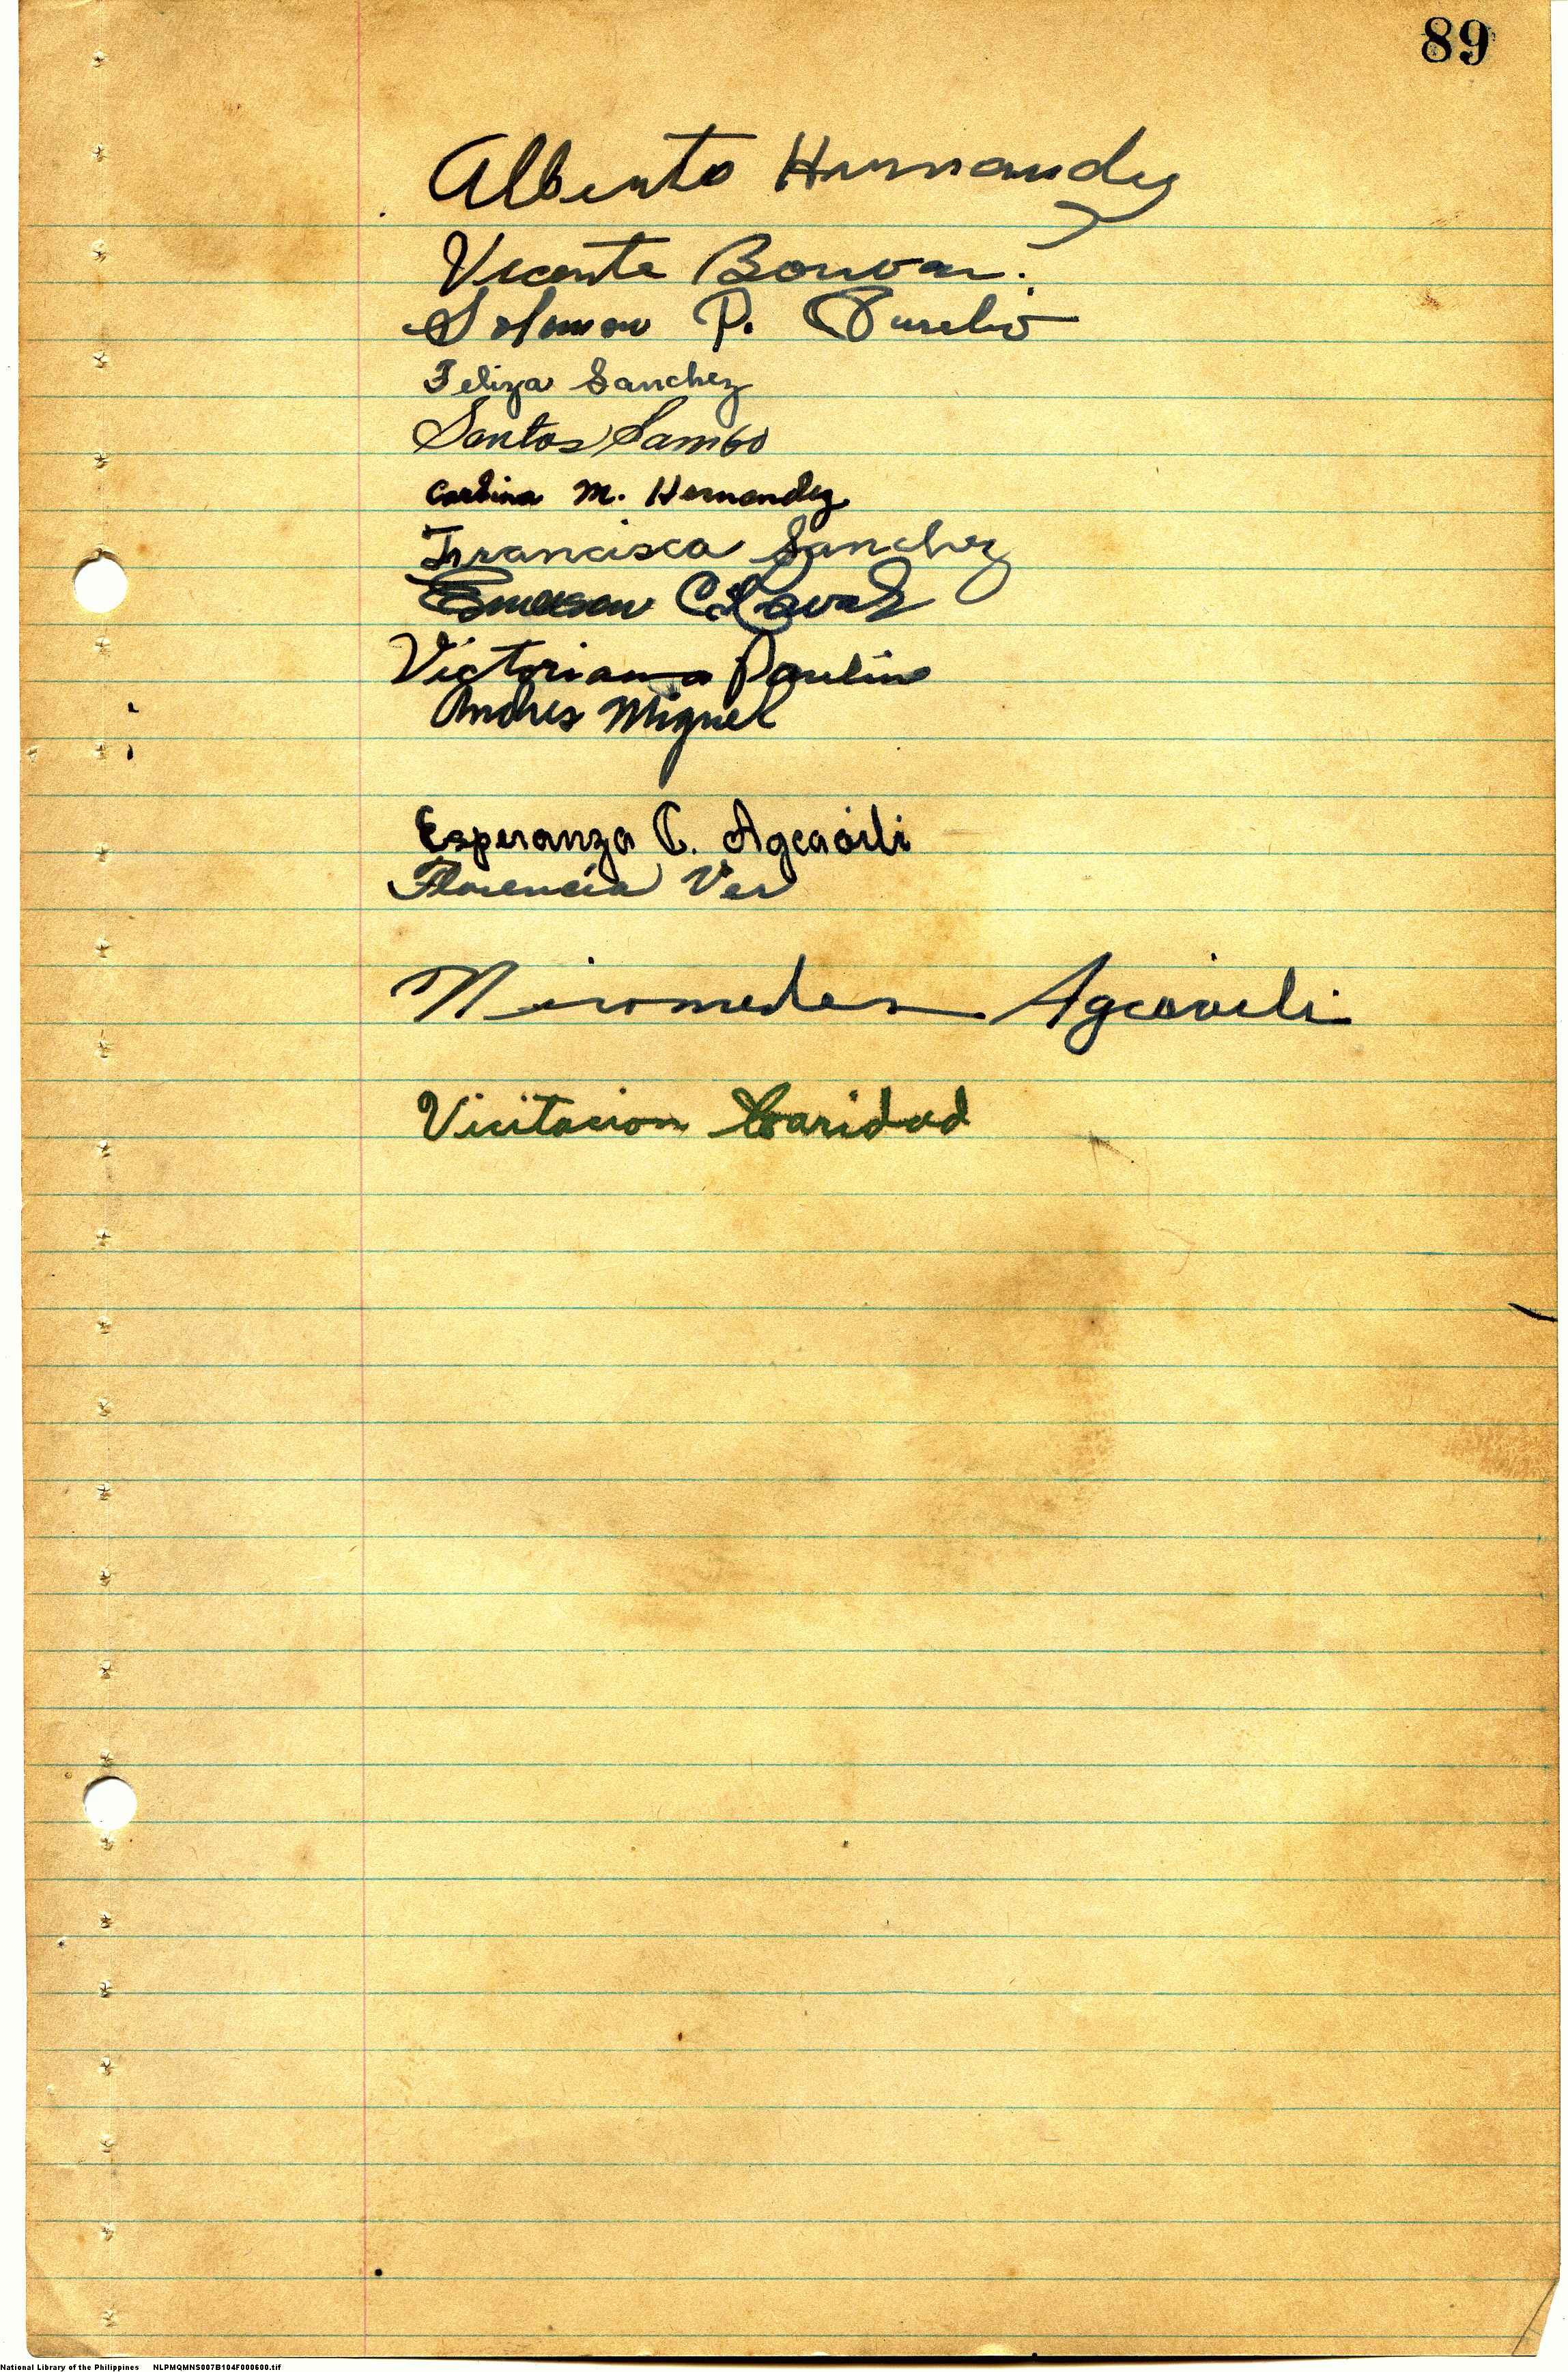 89
Alberto Hernandez
Vicente
Solomon P.
Feliza Sanchez
Santos Sambo
M. Hernandez
Francisca Sanchez
Emerson
Victoriano Paulino
Andres Miguel
Esperanza C. Agcaoili
Florencia Ver
Agcaoili
Vicitacion Caridad
National Library of the Philippines NLPMQMNS007B104F000600.tif